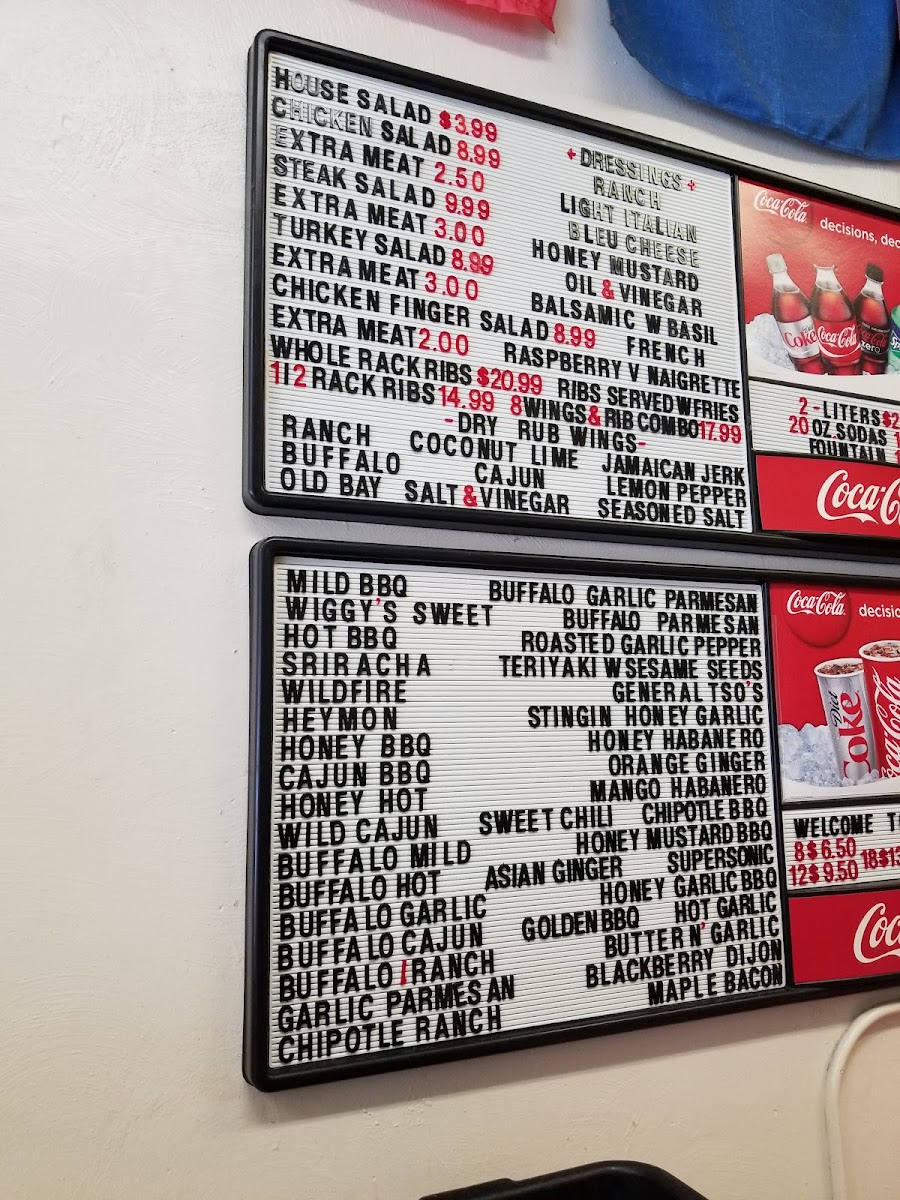 HOUSE SALAD $3.99
CHICKEN SALAD 8.99
EXTRA MEAT 2.50
STEAK SALAD 9.99
EXTRA MEAT 3.00
TURKEY SALAD 8.99
EXTRA MEAT 3.00
CHICKEN FINGER SALAD 8.99
EXTRA MEAT 2.00
+ DRESSINGS +
RANCH
LIGHT ITALIAN
BLEU CHEESE
HONEY MUSTARD
OIL & VINEGAR
BALSAMIC W BASIL
FRENCH
RASPBERRY V NAIGRETTE
WHOLE RACK RIBS $20.99 RIBS SERVED W FRIES
1I2 RACK RIBS 14.99 8 WINGS & RIB COMBO 17.99
-DRY RUB WINGS-
RANCH COCONUT LIME JAMAICAN JERK
BUFFALO CAJUN LEMON PEPPER
OLD BAY SALT & VINEGAR SEASONED SALT
Coca-Cola
decisions, dec
Diet Coke
Coca-Cola
Coca-Cola zero
Sp
2-LITERS $2
20 OZ. SODAS
FOUNTAIN 1
Coca-C
MILD BBQ
WIGGY'S SWEET
HOT BBQ
SRIRACHA
WILDFIRE
HEYMON
HONEY BBQ
CAJUN BBQ
HONEY HOT
WILD CAJUN
BUFFALO MILD
BUFFALO HOT
BUFFALO GARLIC
BUFFALO CAJUN
BUFFALO / RANCH
GARLIC PARMESAN
CHIPOTLE RANCH
BUFFALO GARLIC PARMESAN
BUFFALO PARMESAN
ROASTED GARLIC PEPPER
TERIYAKI W SESAME SEEDS
GENERAL TSO'S
STINGIN HONEY GARLIC
HONEY HABANERO
ORANGE GINGER
MANGO HABANERO
SWEET CHILI CHIPOTLE BBQ
HONEY MUSTARD BBQ
ASIAN GINGER SUPERSONIC
HONEY GARLIC BBQ
GOLDEN BBQ HOT GARLIC
BUTTER N' GARLIC
BLACKBERRY DIJON
MAPLE BACON
Coca-Cola
decisio
Diet Coke
Coca-Cola
WELCOME T
8$ 6.50
12$ 9.50 18$13
Coc